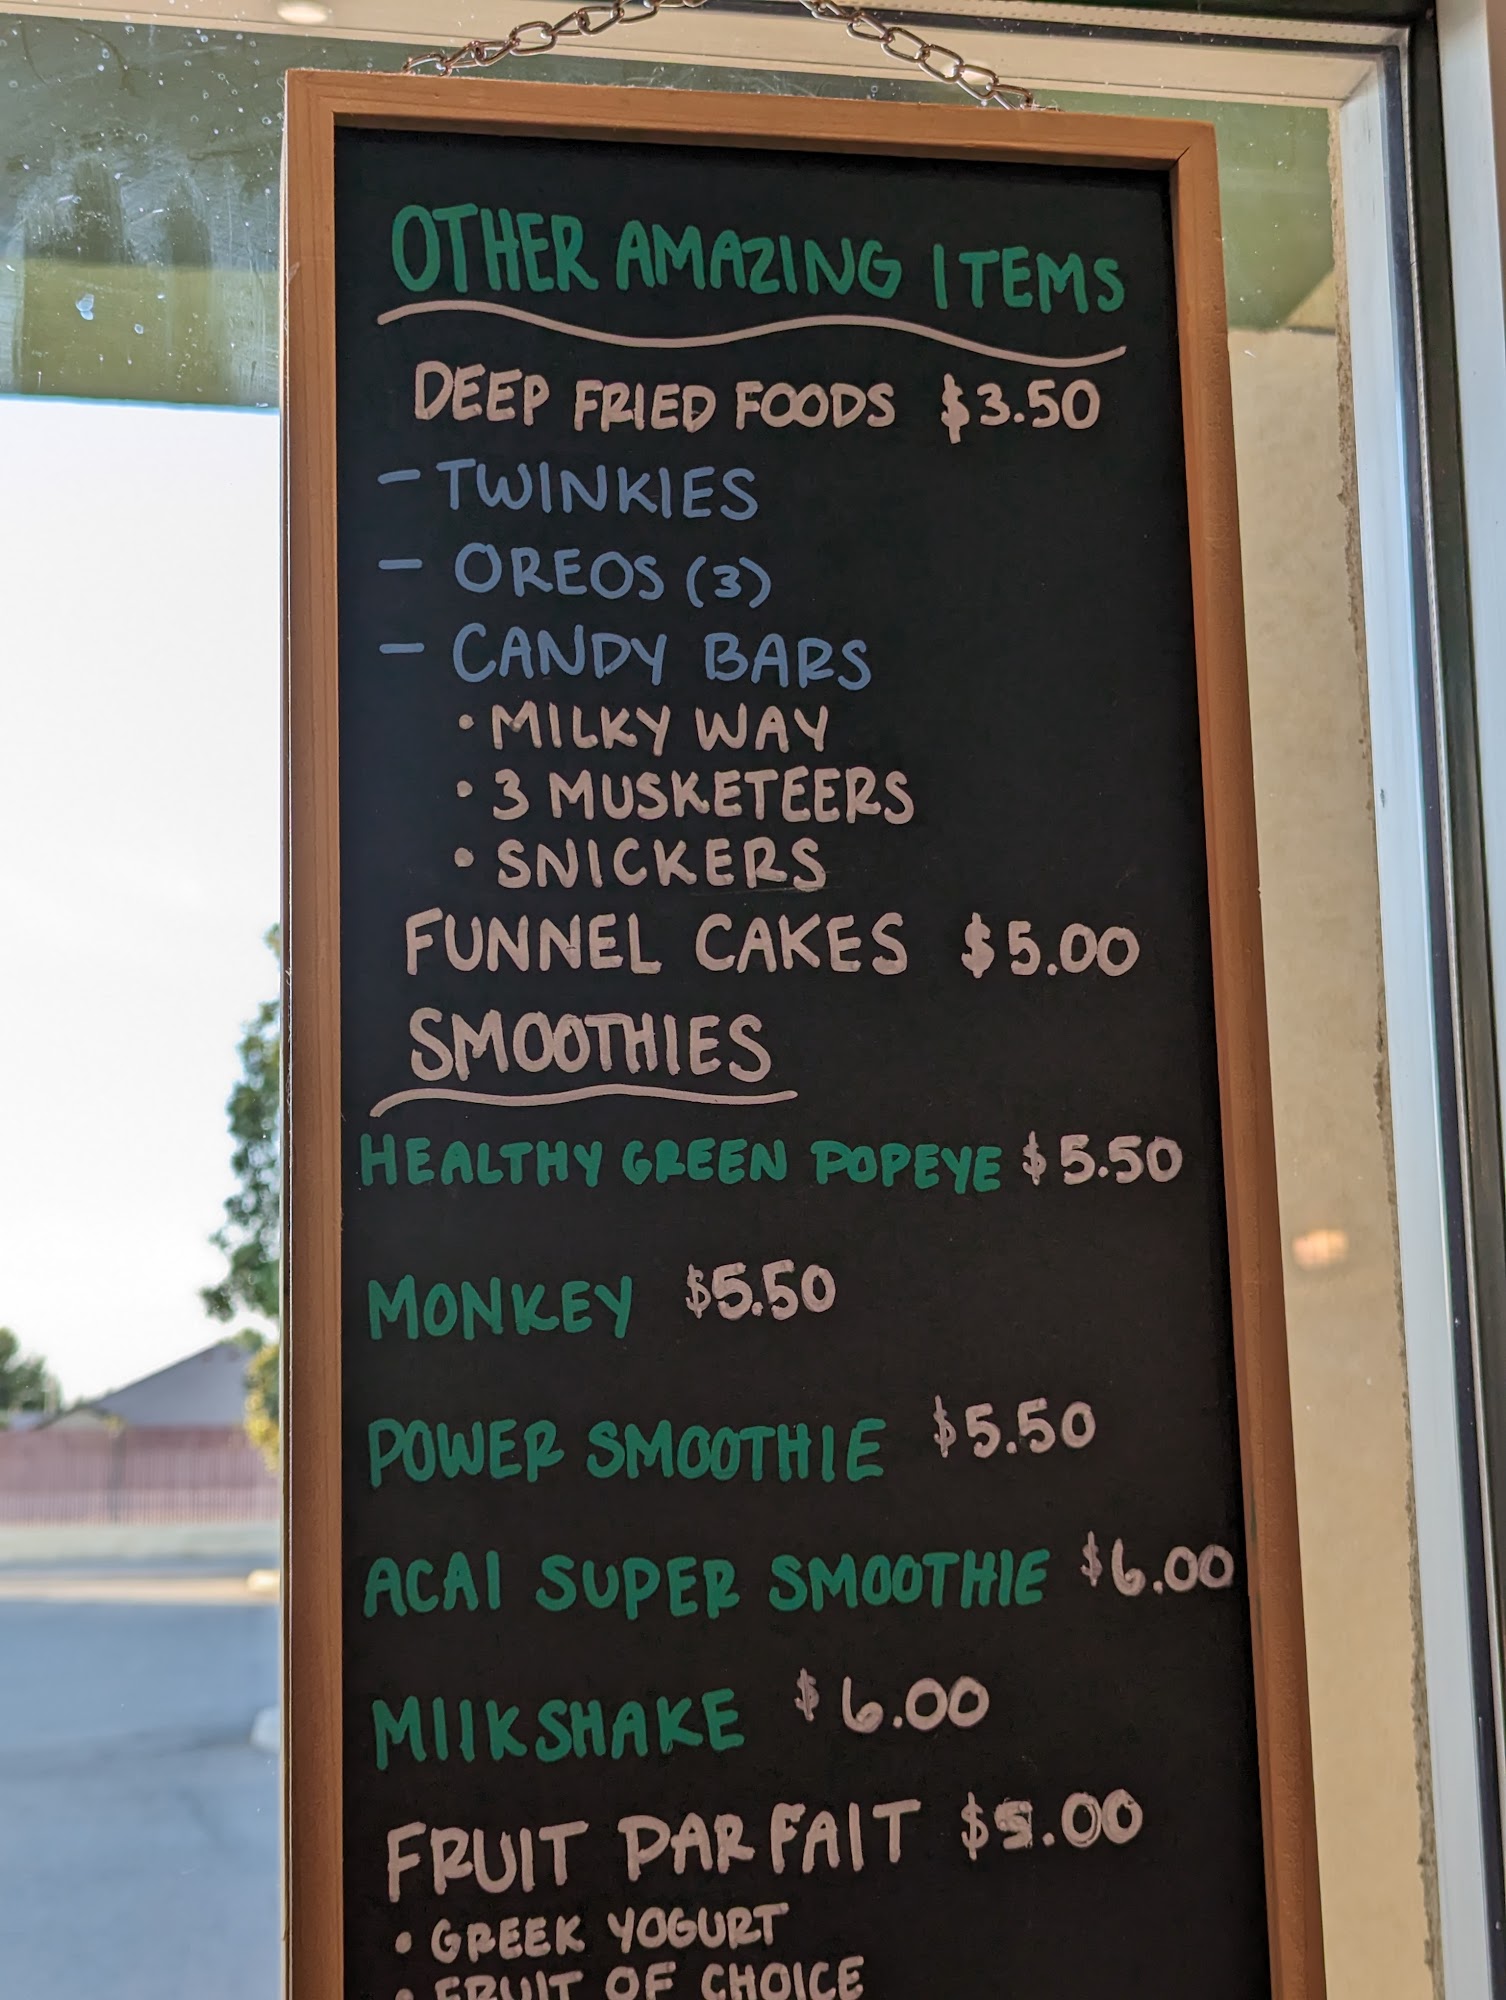 OTHER AMAZING ITEMS
DEEP FRIED FOODS $3.50
- TWINKIES
- OREOS (3)
- CANDY BARS
• MILKY WAY
• 3 MUSKETEERS
• SNICKERS
FUNNEL CAKES $5.00
SMOOTHIES
HEALTHY GREEN POPEYE $5.50
MONKEY $5.50
POWER SMOOTHIE $5.50
ACAI SUPER SMOOTHIE $6.00
MIlKSHAKE $6.00
FRUIT PARFAIT $5.00
• GREEK YOGURT
• FRUIT OF CHOICE